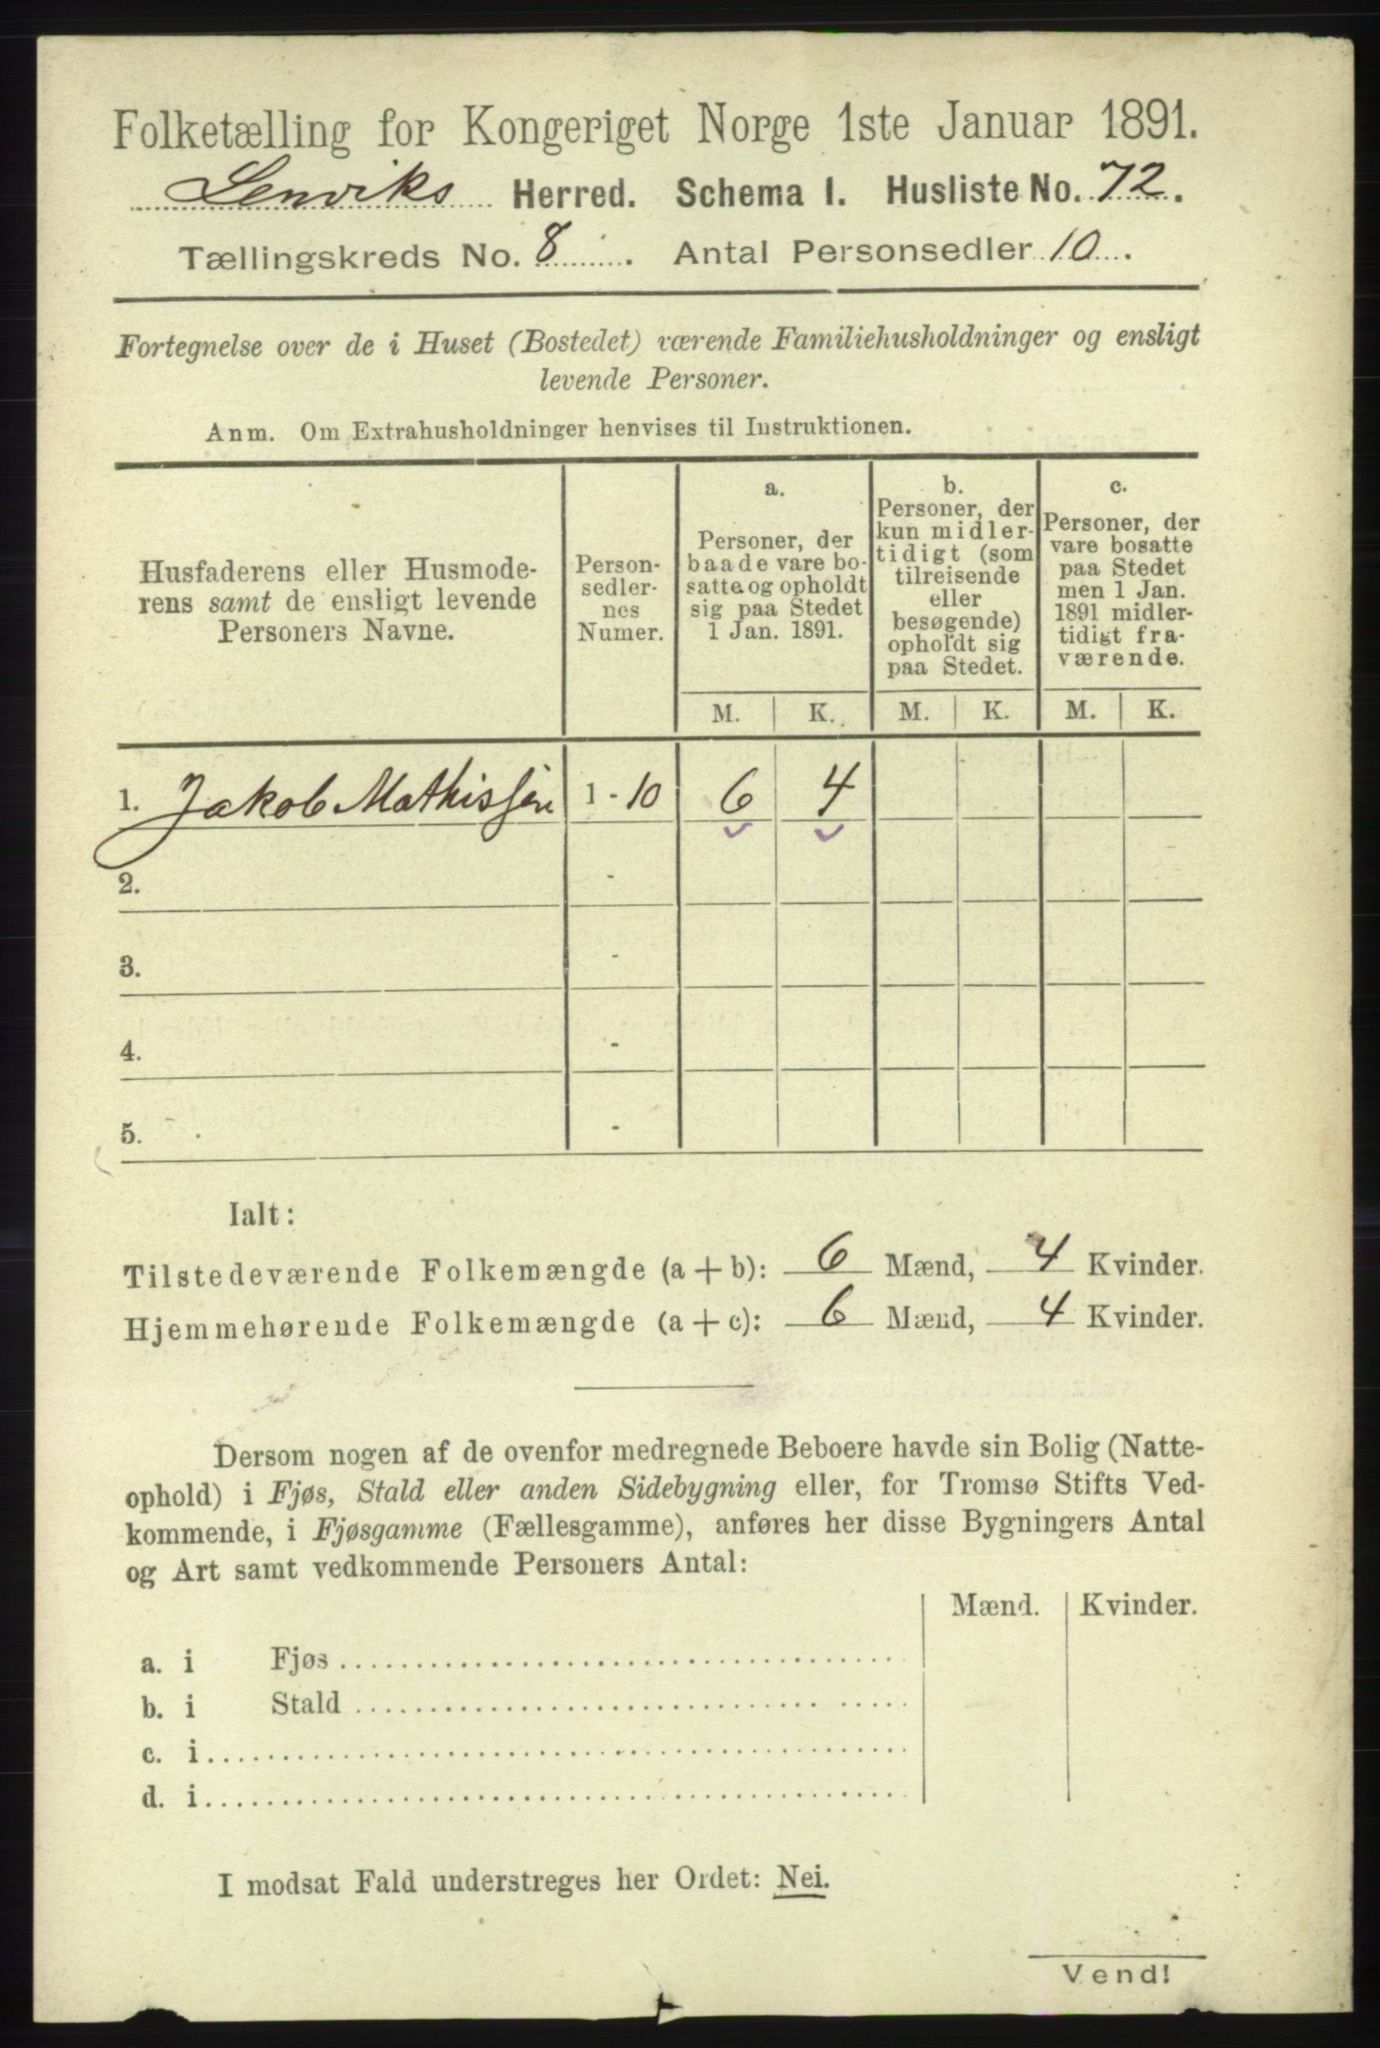 Folketælling for Kongeriget Norge 1ste Januar 1891.
Lenviks Herred. Schema I. Husliste No. 72.
Tællingskreds No. 8. Antal Personsedler 10.
Fortegnelse over de i Huset (Bostedet) værende Familiehusholdninger og ensligt
levende Personer.
Anm. Om Extrahusholdninger henvises til Instruktionen.
Husfaderens eller Husmode-
rens samt de ensligt levende
Personers Navne.
Person-
sedler-
nes
Numer.
a.
Personer, der
baade vare bo-
satte og opholdt
sig paa Stedet
1 Jan. 1891.
b.
Personer, der
kun midler-
tidigt (som
tilreisende
eller
besøgende)
opholdt sig
paa Stedet.
c.
Personer, der
vare bosatte
paa Stedet
men 1 Jan.
1891 midler-
tidigt fra-
værende.
M. K. M. K. M. K.
1. Jakob Mathissen 1 - 10 6 4
2. -
3. -
4. -
5. -
Ialt:
Tilstedeværende Folkemængde (a + b): 6 Mænd, 4 Kvinder.
Hjemmehørende Folkemængde (a + c): 6 Mænd, 4 Kvinder.
Dersom nogen af de ovenfor medregnede Beboere havde sin Bolig (Natte-
ophold) i Fjøs, Stald eller anden Sidebygning eller, for Tromsø Stifts Ved-
kommende, i Fjøsgamme (Fællesgamme), anføres her disse Bygningers Antal
og Art samt vedkommende Personers Antal:
Mænd. Kvinder.
a. i Fjøs
b. i Stald
c. i
d. i
I modsat Fald understreges her Ordet: Nei.
Vend!